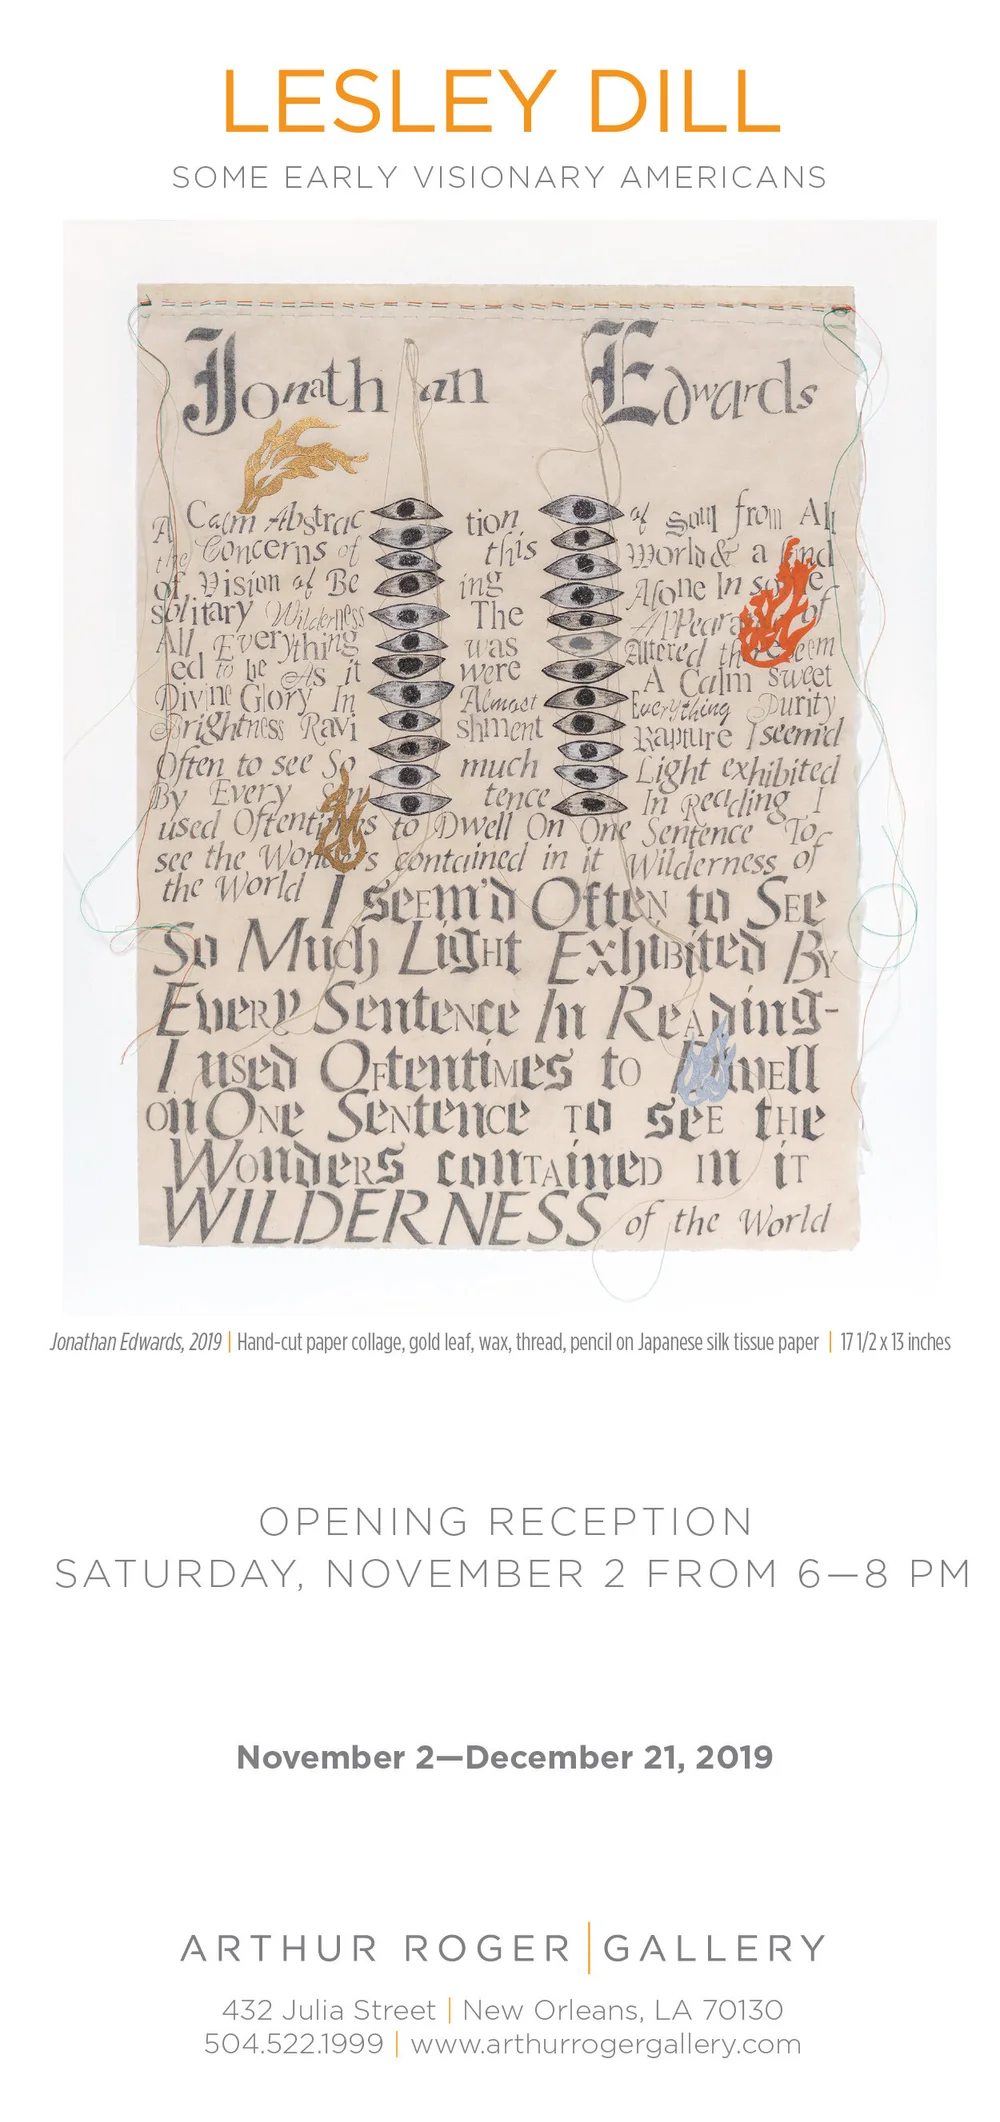 LESLEY DILL
SOME EARLY VISIONARY AMERICANS
Jonathan Edwards
A Calm Abstrac tion of Soul from All
the Concerns of this World & a kind
of Vision of Be ing Alone In some
solitary Wilderness The Appeara of
All Everything was Altered there seem
ed to be As it were A Calm sweet
Divine Glory In Almost Everything Purity
Brightness Ravi shment Rapture I seem'd
Often to see So much Light exhibited
By Every Sen tence In Reading I
used Oftentimes to Dwell On One Sentence To
see the Wonders contained in it Wilderness of
the World I seem'd Often to See
So Much Light Exhibited By
Every Sentence In Reading-
I used Oftentimes to Dwell
on One Sentence to see the
Wonders contained in it
WILDERNESS of the World
Jonathan Edwards, 2019 | Hand-cut paper collage, gold leaf, wax, thread, pencil on Japanese silk tissue paper | 17 1/2 x 13 inches
OPENING RECEPTION
SATURDAY, NOVEMBER 2 FROM 6—8 PM
November 2—December 21, 2019
ARTHUR ROGER | GALLERY
432 Julia Street | New Orleans, LA 70130
504.522.1999 | www.arthurrogergallery.com